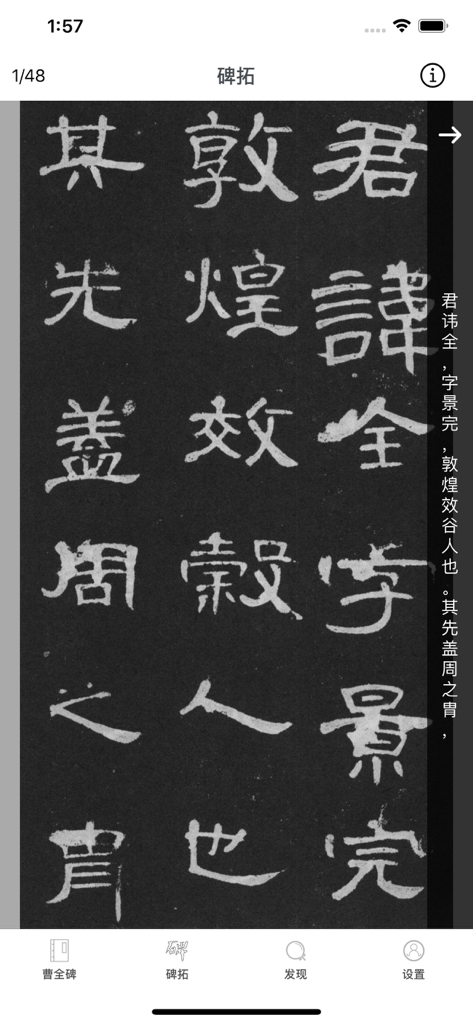 1:57
1/48
碑拓
君諱全字景完
敦煌效穀人也
其先蓋周之胄
君讳全，字景完，敦煌效谷人也。其先盖周之胄，
曹全碑
碑拓
发现
设置